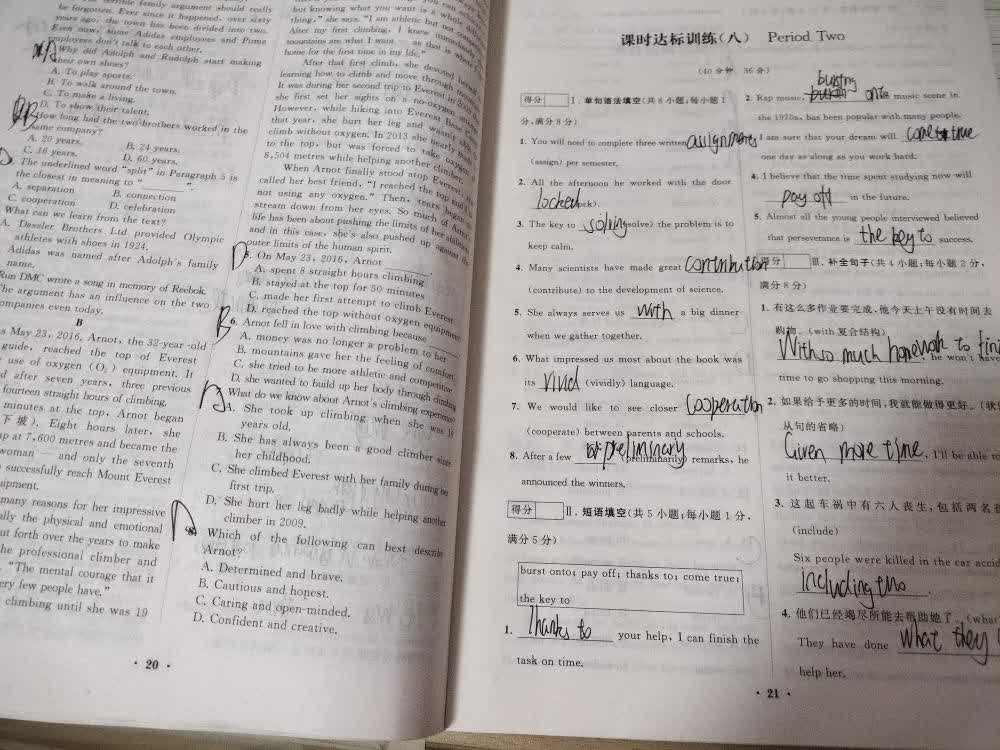 terrible family argument should really
be forgotten. Ever since it happened, over sixty
years ago, the town has been divided into two.
Even now, some Adidas employees and Puma
employees don't talk to each other.
Why did Adolph and Rudolph start making
their own shoes?
A. To play sports.
B. To walk around the town.
C. To make a living.
D. To show their talent.
B
How long had the two brothers worked in the
same company?
A. 20 years. B. 24 years.
C. 16 years. D. 60 years.
The underlined word "split" in Paragraph 5 is
the closest in meaning to "______".
A. separation B. connection
C. cooperation D. celebration
What can we learn from the text?
A. Dassler Brothers Ltd provided Olympic
athletes with shoes in 1924.
Adidas was named after Adolph's family
name.
Run DMC wrote a song in memory of Reebok.
The argument has an influence on the two
companies even today.
B
May 23, 2016, Arnot, the 32-year-old
guide, reached the top of Everest
use of oxygen (O₂) equipment. It
after seven years, three previous
fourteen straight hours of climbing.
minutes at the top, Arnot began
下坡). Eight hours later, she
up at 7,600 metres and became the
woman — and only the seventh
successfully reach Mount Everest
many reasons for her impressive
ally the physical and emotional
ut forth over the years to make
he professional climber and
"The mental courage that it
ery few people have."
climbing until she was 19
but knowing what you want is a whole
thing," she says. "I am athletic but not
After my first climbing, I knew immediately
mountains are what I want — as that is
home for the first time in my life."
After that first climb, she devoted herself
learning how to climb and move through
It was during her second trip to Everest in
she first set her sights on a no-oxygen
However, while hiking into Everest
that year, she hurt her leg and wasn't able
climb without oxygen. In 2013 she nearly
to the top, but was forced to take oxygen
8,504 metres while helping another climber.
When Arnot finally stood atop Everest, she
called her best friend, "I reached the top and I'm
not using any oxygen." Then, tears began
stream down from her eyes. So much of Arnot's
life has been about pushing the limits of her abilities
and in this case, she's also pushed up against the
outer limits of the human spirit.
D 5. On May 23, 2016, Arnot ______.
A. spent 8 straight hours climbing
B. stayed at the top for 50 minutes
C. made her first attempt to climb Everest
D. reached the top without oxygen equipment
B 6. Arnot fell in love with climbing because ______.
A. money was no longer a problem to her
B. mountains gave her the feeling of comfort
C. she tried to be more athletic and competitive
D. she wanted to build up her body through climbing
What do we know about Arnot's climbing experience?
A. She took up climbing when she was 19
years old.
B. She has always been a good climber since
her childhood.
C. She climbed Everest with her family during her
first trip.
D. She hurt her leg badly while helping another
climber in 2009.
8. Which of the following can best describe
Arnot?
A. Determined and brave.
B. Cautious and honest.
C. Caring and open-minded.
D. Confident and creative.
· 20 ·
课时达标训练(八) Period Two
(40分钟 36分)
得分 Ⅰ. 单句语法填空(共8小题;每小题1
分,满分8分)
1. You will need to complete three written assignments
(assign) per semester.
2. All the afternoon he worked with the door
locked (lock).
3. The key to solving (solve) the problem is to
keep calm.
4. Many scientists have made great contribution
(contribute) to the development of science.
5. She always serves us with a big dinner
when we gather together.
6. What impressed us most about the book was
its vivid (vividly) language.
7. We would like to see closer cooperation
(cooperate) between parents and schools.
8. After a few preliminary (preliminarily) remarks, he
announced the winners.
得分 Ⅱ. 短语填空(共5小题;每小题1分,
满分5分)
burst onto; pay off; thanks to; come true;
the key to
1. Thanks to your help, I can finish the
task on time.
2. Rap music, bursting onto music scene in
the 1970s, has been popular with many people.
I am sure that your dream will come true
one day as along as you work hard.
4. I believe that the time spent studying now will
pay off in the future.
5. Almost all the young people interviewed believed
that perseverance is the key to success.
得分 Ⅲ. 补全句子(共4小题;每小题2分,
满分8分)
1. 有这么多作业要完成,他今天上午没有时间去
购物。(with复合结构)
With so much homework to fini, he won't have
time to go shopping this morning.
2. 如果给予更多的时间,我就能做得更好。(状语
从句的省略)
Given more time, I'll be able to
it better.
3. 这起车祸中有六人丧生,包括两名孩
(include)
Six people were killed in the car accid
including two.
4. 他们已经竭尽所能去帮助她了。(what
They have done what they
help her.
· 21 ·